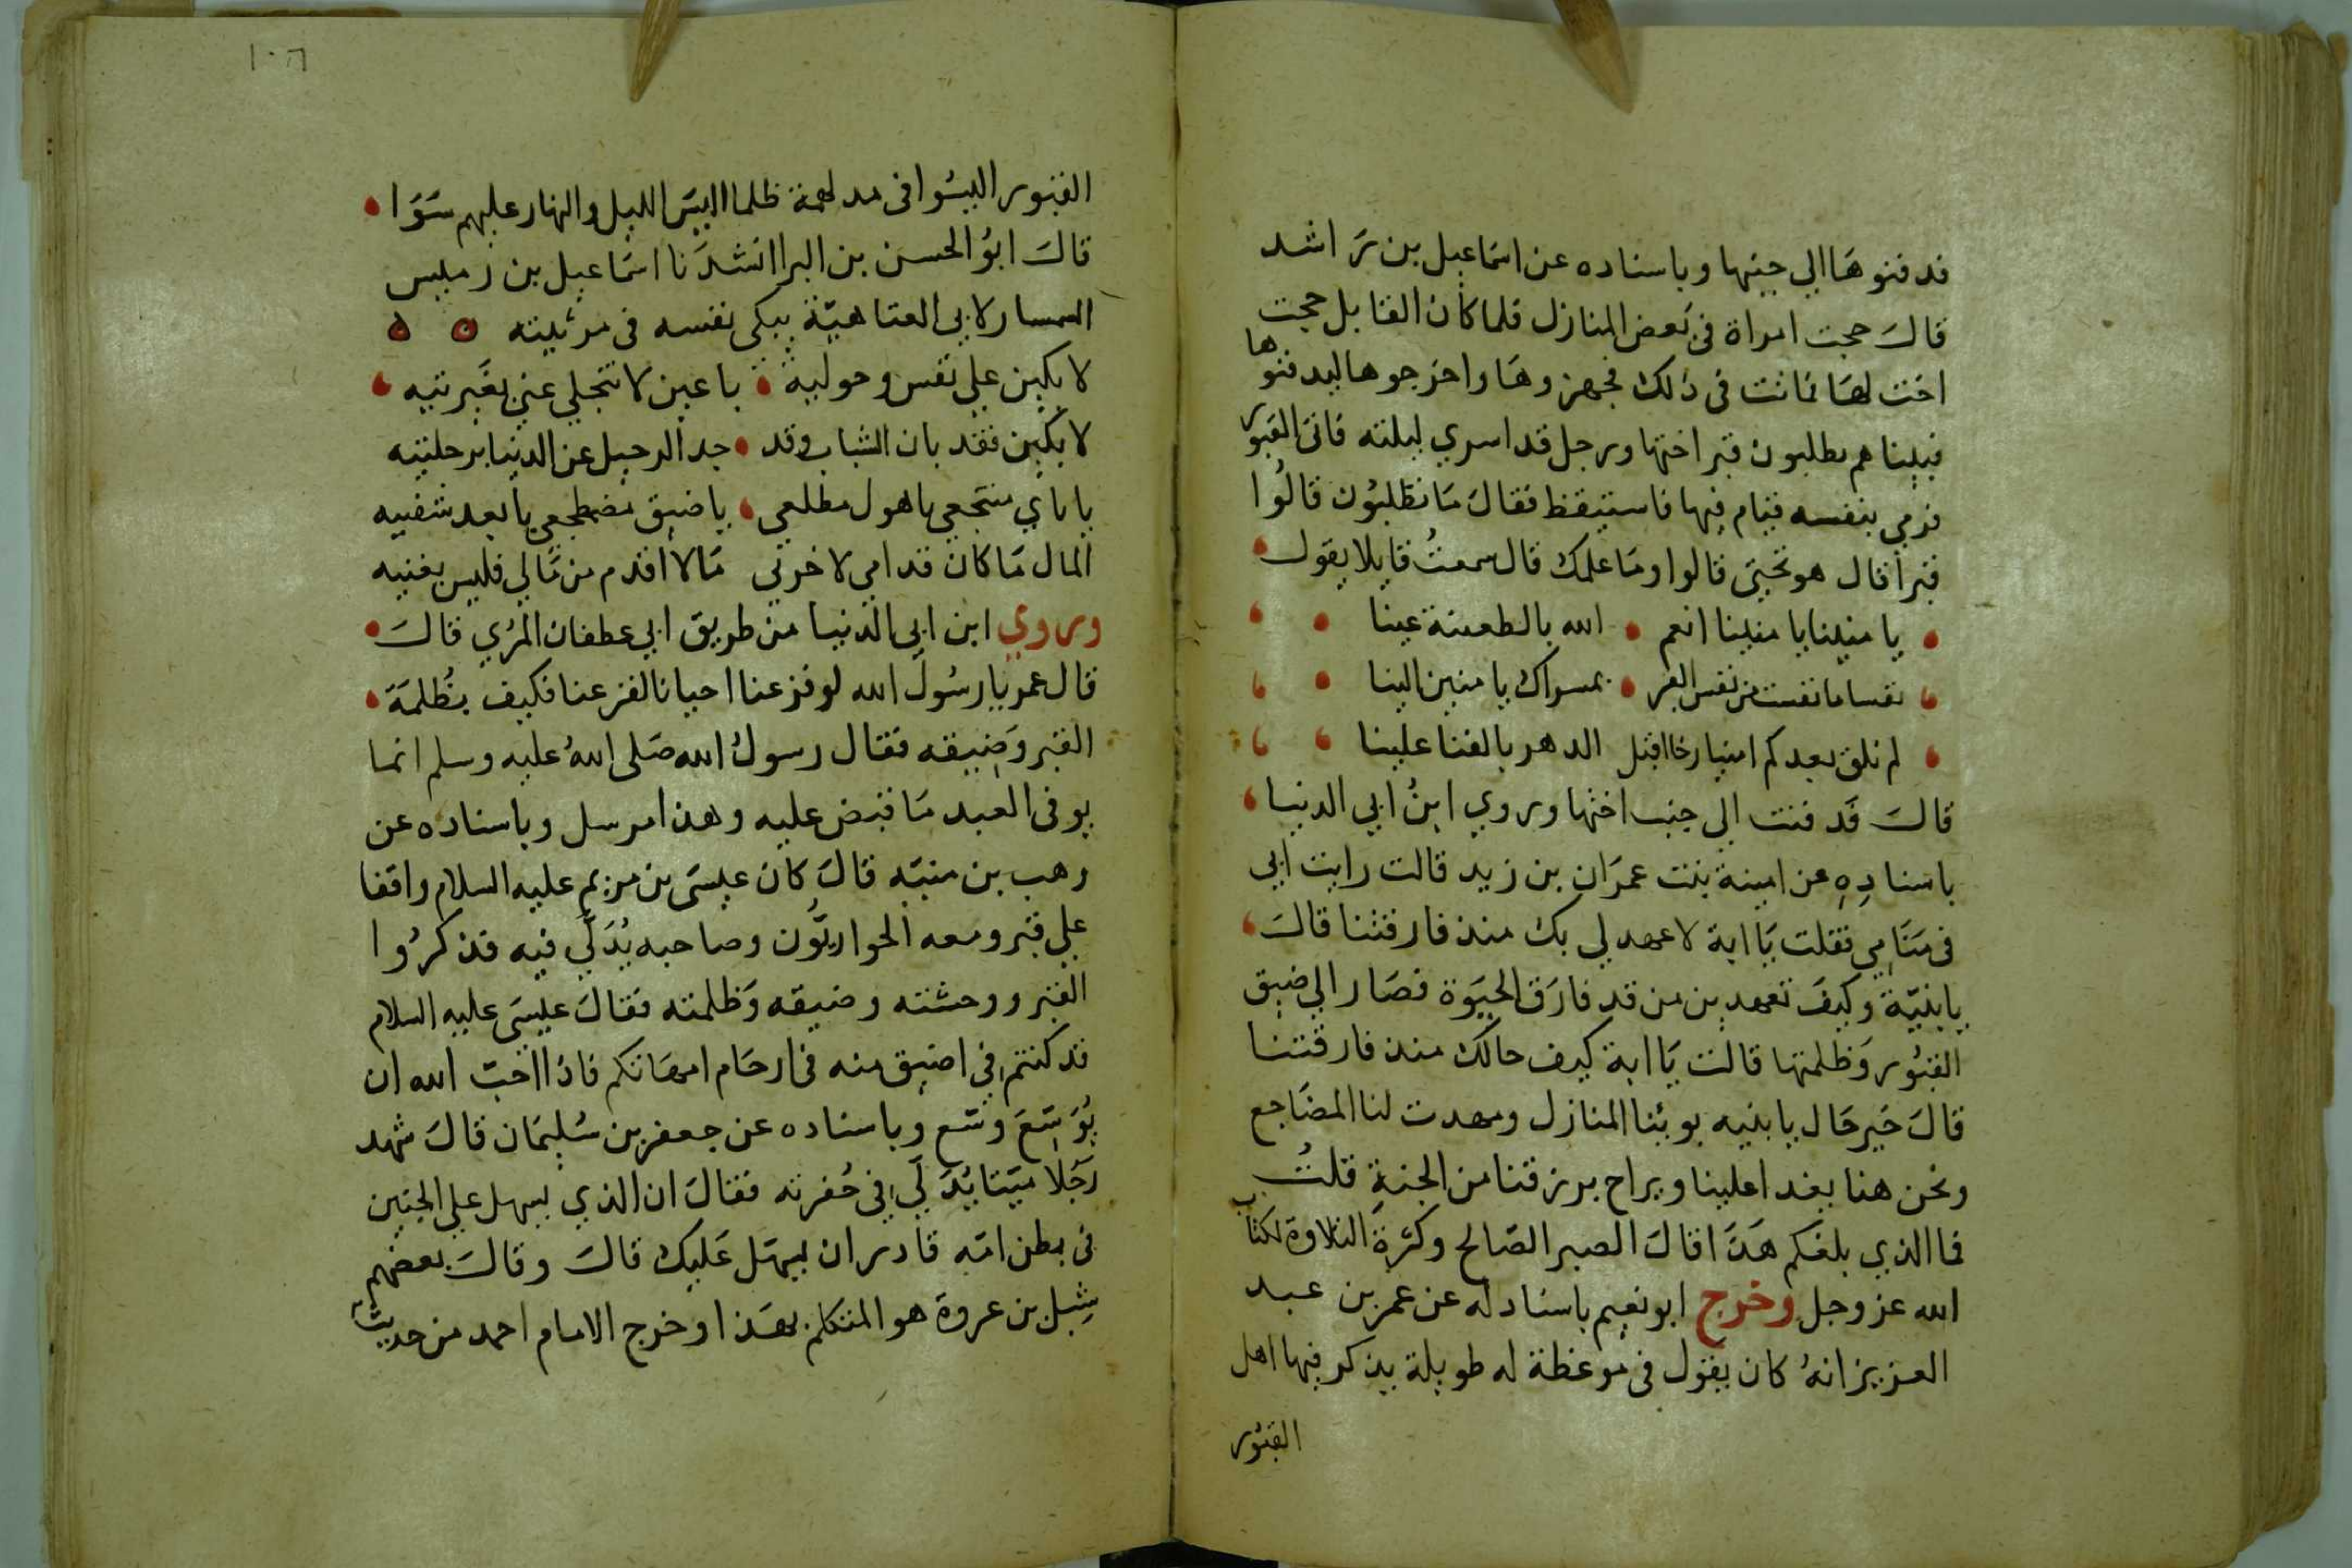 فدفنوها الي جنبها وباسناده عن اسماعيل بن راشد
قال حجت امراة في بعض المنازل فلما كان القابل حجت
اخت لها فماتت في ذلك فجهزوها واخرجوها ليدفنوها
فبيناهم يطلبون قبر اختها ورجل قد اسري ليلته فاتي القبور
فرمي بنفسه فنام فيها فاستيقظ فقال ما تطلبون قالوا
قبرا قال هو تحتي قالوا وما علمك قال سمعت قايلا يقول
يا منينا يا منينا انعم الله بالطعينة عينا
نفسا ما نفست من نفس القبر بمسراك يا منين الينا
لم نلق بعدكم امنيا رخا اقبل الدهر بالفنا علينا
قال فدفنت الي جنب اختها وروي ابن ابي الدنيا
باسناده عن امينة بنت عمران بن زيد قالت رايت ابي
في منامي فقلت يا ابة لا عهد لي بك منذ فارقتنا قال
يا بنية وكيف تعهدين من قد فارق الحيوة فصار الي ضيق
القبور وظلمتها قالت يا ابة كيف حالك منذ فارقتنا
قال خير حال يا بنيه بوئنا المنازل ومهدت لنا المضاجع
ونحن هنا يغدا علينا ويراح برزقنا من الجنة قلت
فما الذي بلغكم هذا قال الصبر الصالح وكثرة التلاوة لكتاب
الله عز وجل وخرج ابو نعيم باسناد له عن عمر بن عبد
العزيز انه كان يقول في موعظة له طويلة يذكر فيها اهل
القبور
١٠٦
القبور اليسوا في مدلهمة ظلما اليس الليل والنهار عليهم سوا
قال ابو الحسن بن البرا انشدنا اسماعيل بن زمليس
السمسار لابي العتاهية يبكي نفسه في مرثيته
لا بكين علي نفس وحوليه يا عين لا تبخلي عني بعبرتيه
لا بكين فقد بان الشباب وقد جد الرحيل عن الدنيا برحلتيه
يا ناي منتجعي يا هول مطلعي يا ضيق مضطجعي يا بعد شقتيه
المال ما كان قدامي لاخرتي ما لا اقدم من مالي فليس بغنيه
وروي ابن ابي الدنيا من طريق ابي عطفان المري قال
قال عمر يا رسول الله لو فزعنا احيانا لفزعنا فكيف بظلمة
القبر وضيقه فقال رسول الله صلى الله عليه وسلم انما
يوفى العبد ما قبض عليه وهذا مرسل وباسناده عن
وهب بن منبه قال كان عيسى بن مريم عليه السلام واقفا
علي قبر ومعه الحواريون وصاحبه يدلي فيه فذكروا
القبر ووحشته وضيقه وظلمته فقال عيسى عليه السلام
قد كنتم في اضيق منه في ارحام امهاتكم فاذا احب الله ان
يوسع وسع وباسناده عن جعفر بن سليمان قال شهد
رجلا ميتا يدلي في حفرته فقال ان الذي يسهل علي الجنين
في بطن امه قادر ان يسهل عليك قال وقال بعضهم
شبل بن عروة هو المتكلم بهذا وخرج الامام احمد من حديث